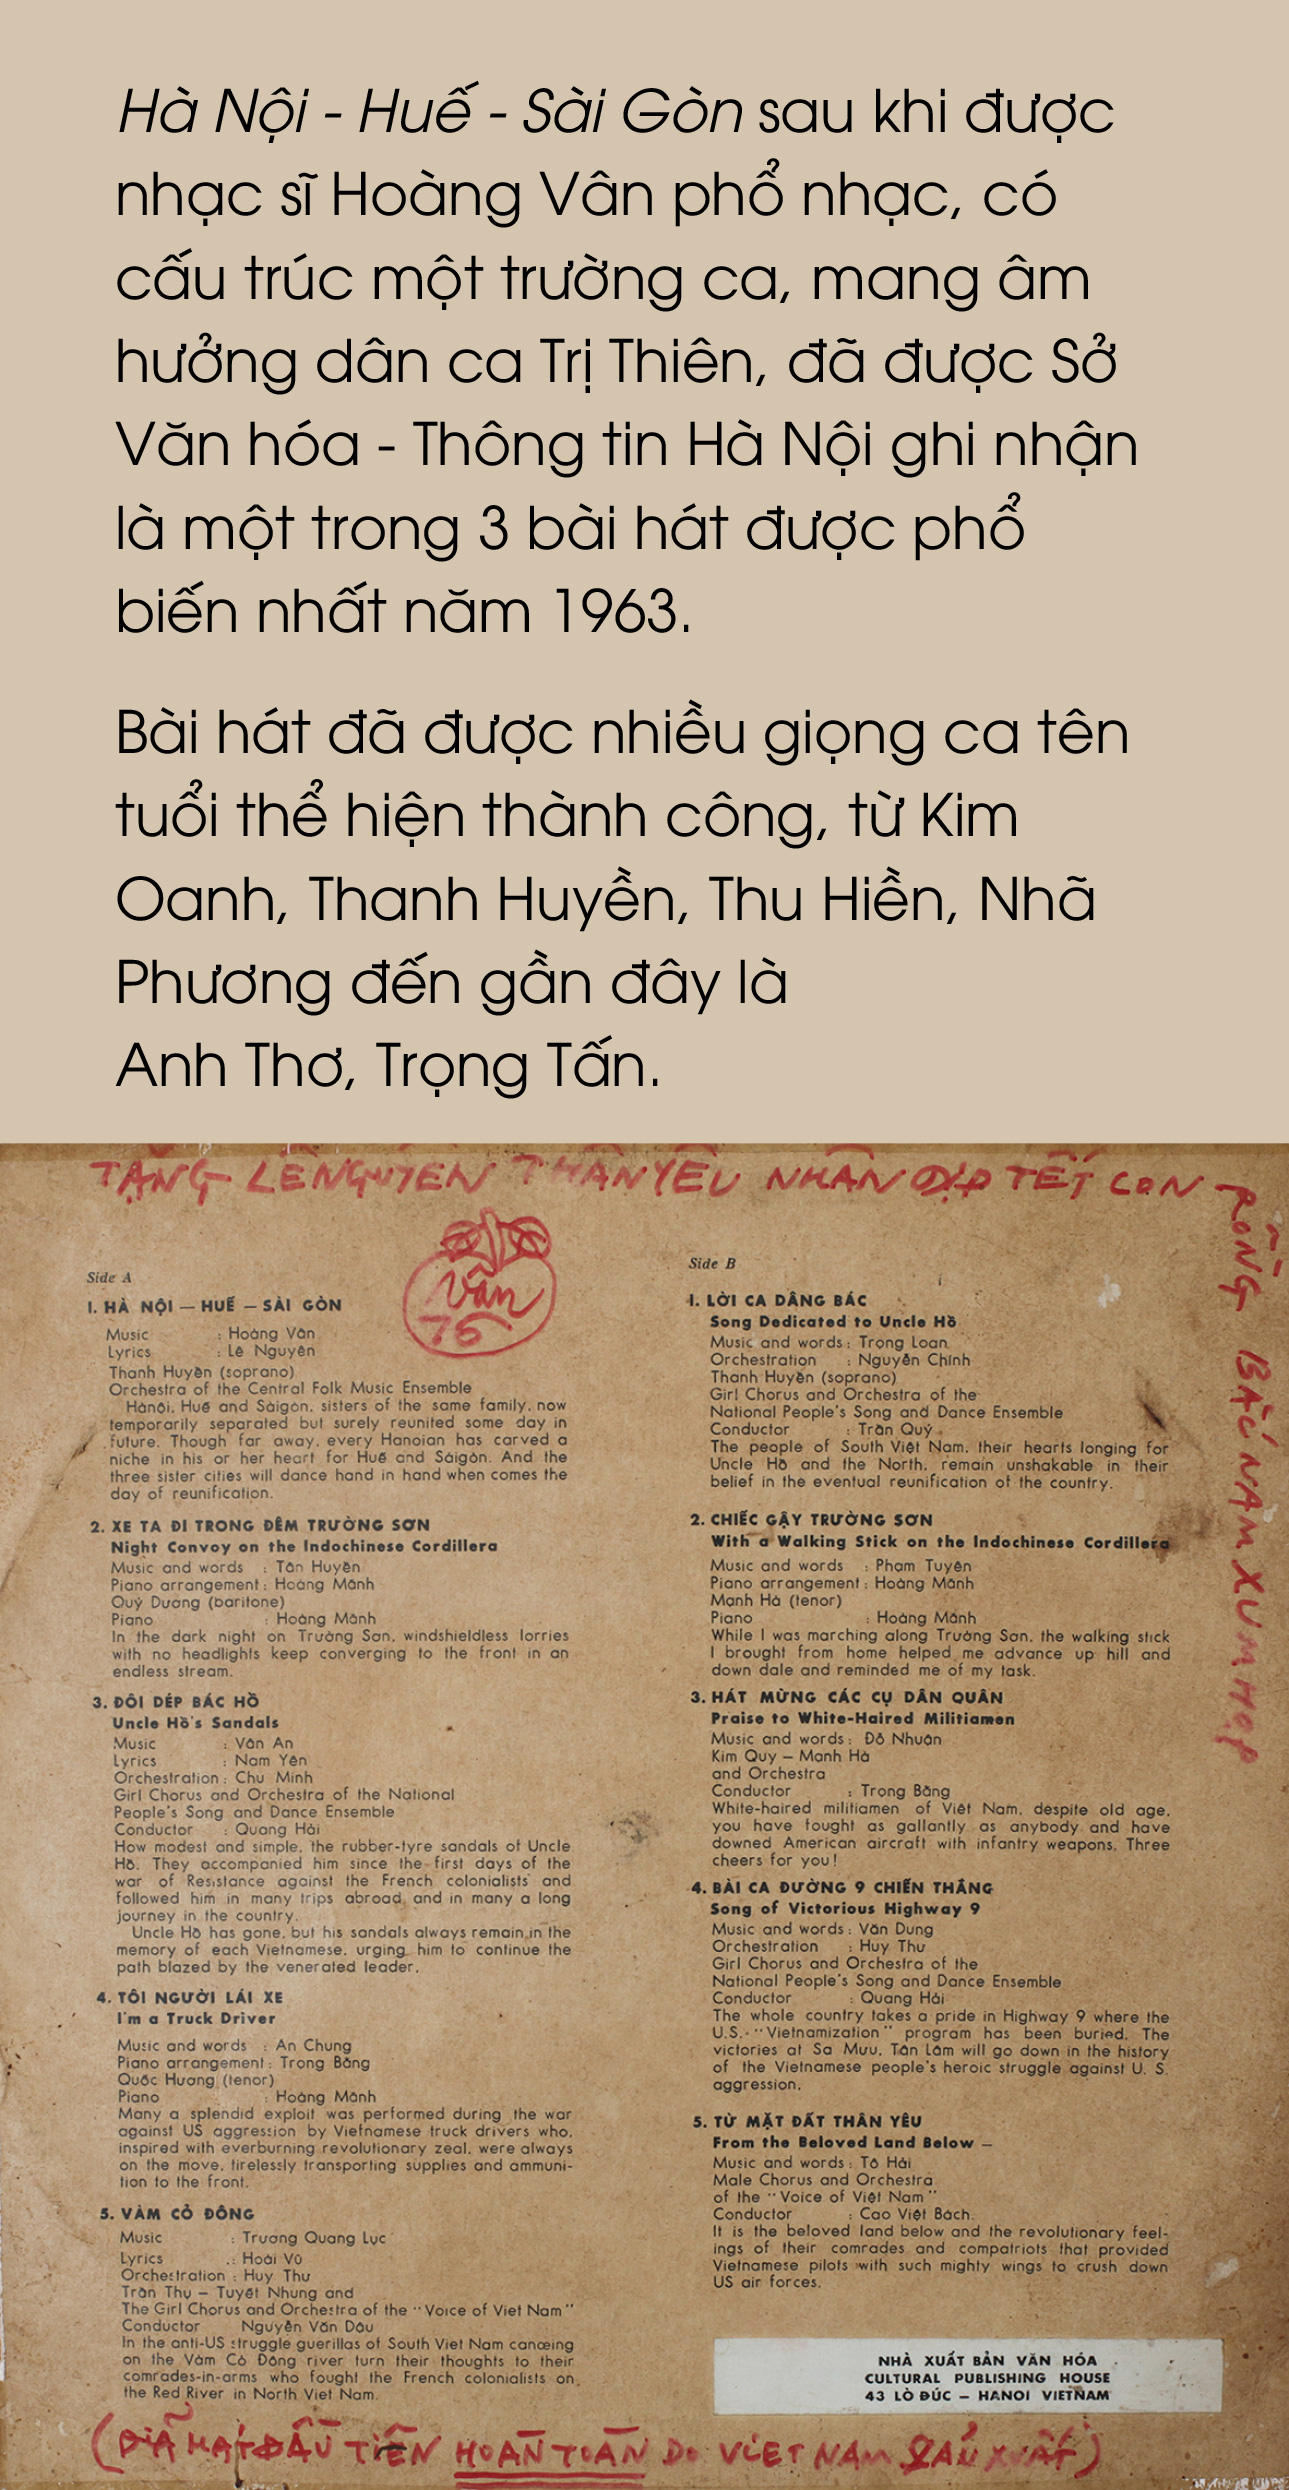 Hà Nội - Huế - Sài Gòn sau khi được
nhạc sĩ Hoàng Vân phổ nhạc, có
cấu trúc một trường ca, mang âm
hưởng dân ca Trị Thiên, đã được Sở
Văn hóa - Thông tin Hà Nội ghi nhận
là một trong 3 bài hát được phổ
biến nhất năm 1963.
Bài hát đã được nhiều giọng ca tên
tuổi thể hiện thành công, từ Kim
Oanh, Thanh Huyền, Thu Hiền, Nhã
Phương đến gần đây là
Anh Thơ, Trọng Tấn.
TẶNG LÊ NGUYÊN THÂN YÊU NHÂN DỊP TẾT CON
RỒNG BẮC NAM XUM HỌP
Vân
76
Side A
1. HÀ NỘI — HUẾ — SÀI GÒN
Music : Hoàng Vân
Lyrics : Lê Nguyên
Thanh Huyền (soprano)
Orchestra of the Central Folk Music Ensemble
Hànôi, Huế and Sàigòn, sisters of the same family, now
temporarily separated but surely reunited some day in
future. Though far away, every Hanoian has carved a
niche in his or her heart for Huế and Sàigòn. And the
three sister cities will dance hand in hand when comes the
day of reunification.
2. XE TA ĐI TRONG ĐÊM TRƯỜNG SƠN
Night Convoy on the Indochinese Cordillera
Music and words : Tân Huyền
Piano arrangement : Hoàng Mãnh
Quý Dương (baritone)
Piano : Hoàng Mãnh
In the dark night on Trường Sơn, windshieldless lorries
with no headlights keep converging to the front in an
endless stream.
3. ĐÔI DÉP BÁC HỒ
Uncle Hồ's Sandals
Music : Văn An
Lyrics : Nam Yên
Orchestration : Chu Minh
Girl Chorus and Orchestra of the National
People's Song and Dance Ensemble
Conductor : Quang Hải
How modest and simple, the rubber-tyre sandals of Uncle
Hồ. They accompanied him since the first days of the
war of Resistance against the French colonialists and
followed him in many trips abroad and in many a long
journey in the country.
Uncle Hồ has gone, but his sandals always remain in the
memory of each Vietnamese, urging him to continue the
path blazed by the venerated leader.
4. TÔI NGƯỜI LÁI XE
I'm a Truck Driver
Music and words : An Chung
Piano arrangement : Trọng Bằng
Quốc Hương (tenor)
Piano : Hoàng Mãnh
Many a splendid exploit was performed during the war
against US aggression by Vietnamese truck drivers who,
inspired with everburning revolutionary zeal, were always
on the move, tirelessly transporting supplies and ammuni-
tion to the front.
5. VÀM CỎ ĐÔNG
Music : Trương Quang Lục
Lyrics : Hoài Vũ
Orchestration : Huy Thư
Trần Thụ — Tuyết Nhung and
The Girl Chorus and Orchestra of the "Voice of Viet Nam"
Conductor Nguyễn Văn Dậu
In the anti-US struggle guerillas of South Viet Nam canœing
on the Vàm Cỏ Đông river turn their thoughts to their
comrades-in-arms who fought the French colonialists on
the Red River in North Viet Nam.
Side B
1. LỜI CA DÂNG BÁC
Song Dedicated to Uncle Hồ
Music and words : Trọng Loan
Orchestration : Nguyễn Chính
Thanh Huyền (soprano)
Girl Chorus and Orchestra of the
National People's Song and Dance Ensemble
Conductor : Trần Quý
The people of South Việt Nam, their hearts longing for
Uncle Hồ and the North, remain unshakable in their
belief in the eventual reunification of the country.
2. CHIẾC GẬY TRƯỜNG SƠN
With a Walking Stick on the Indochinese Cordillera
Music and words : Phạm Tuyên
Piano arrangement : Hoàng Mãnh
Mạnh Hà (tenor)
Piano : Hoàng Mãnh
While I was marching along Trường Sơn, the walking stick
I brought from home helped me advance up hill and
down dale and reminded me of my task.
3. HÁT MỪNG CÁC CỤ DÂN QUÂN
Praise to White-Haired Militiamen
Music and words : Đỗ Nhuận
Kim Quy — Mạnh Hà
and Orchestra
Conductor : Trọng Bằng
White-haired militiamen of Việt Nam, despite old age,
you have fought as gallantly as anybody and have
downed American aircraft with infantry weapons. Three
cheers for you!
4. BÀI CA ĐƯỜNG 9 CHIẾN THẮNG
Song of Victorious Highway 9
Music and words : Văn Dung
Orchestration : Huy Thư
Girl Chorus and Orchestra of the
National People's Song and Dance Ensemble
Conductor : Quang Hải
The whole country takes a pride in Highway 9 where the
U.S. "Vietnamization" program has been buried. The
victories at Sa Mưu, Tân Lâm will go down in the history
of the Vietnamese people's heroic struggle against U. S.
aggression.
5. TỪ MẶT ĐẤT THÂN YÊU
From the Beloved Land Below —
Music and words : Tô Hải
Male Chorus and Orchestra
of the "Voice of Việt Nam"
Conductor : Cao Việt Bách
It is the beloved land below and the revolutionary feel-
ings of their comrades and compatriots that provided
Vietnamese pilots with such mighty wings to crush down
US air forces.
NHÀ XUẤT BẢN VĂN HÓA
CULTURAL PUBLISHING HOUSE
43 LÒ ĐÚC — HANOI VIETNAM
(ĐĨA HÁT ĐẦU TIÊN HOÀN TOÀN DO VIET NAM SẢN XUẤT)